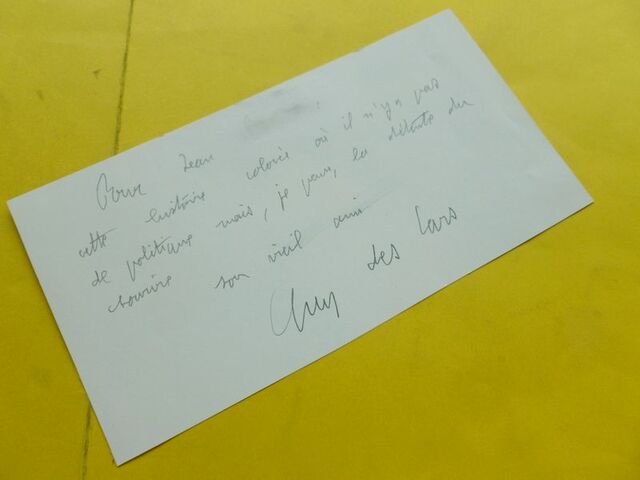 Pour Jean
cette histoire colorée où il n'y a pas
de politique mais, je pense, la détente du
sourire son vieil ami
Guy des Cars